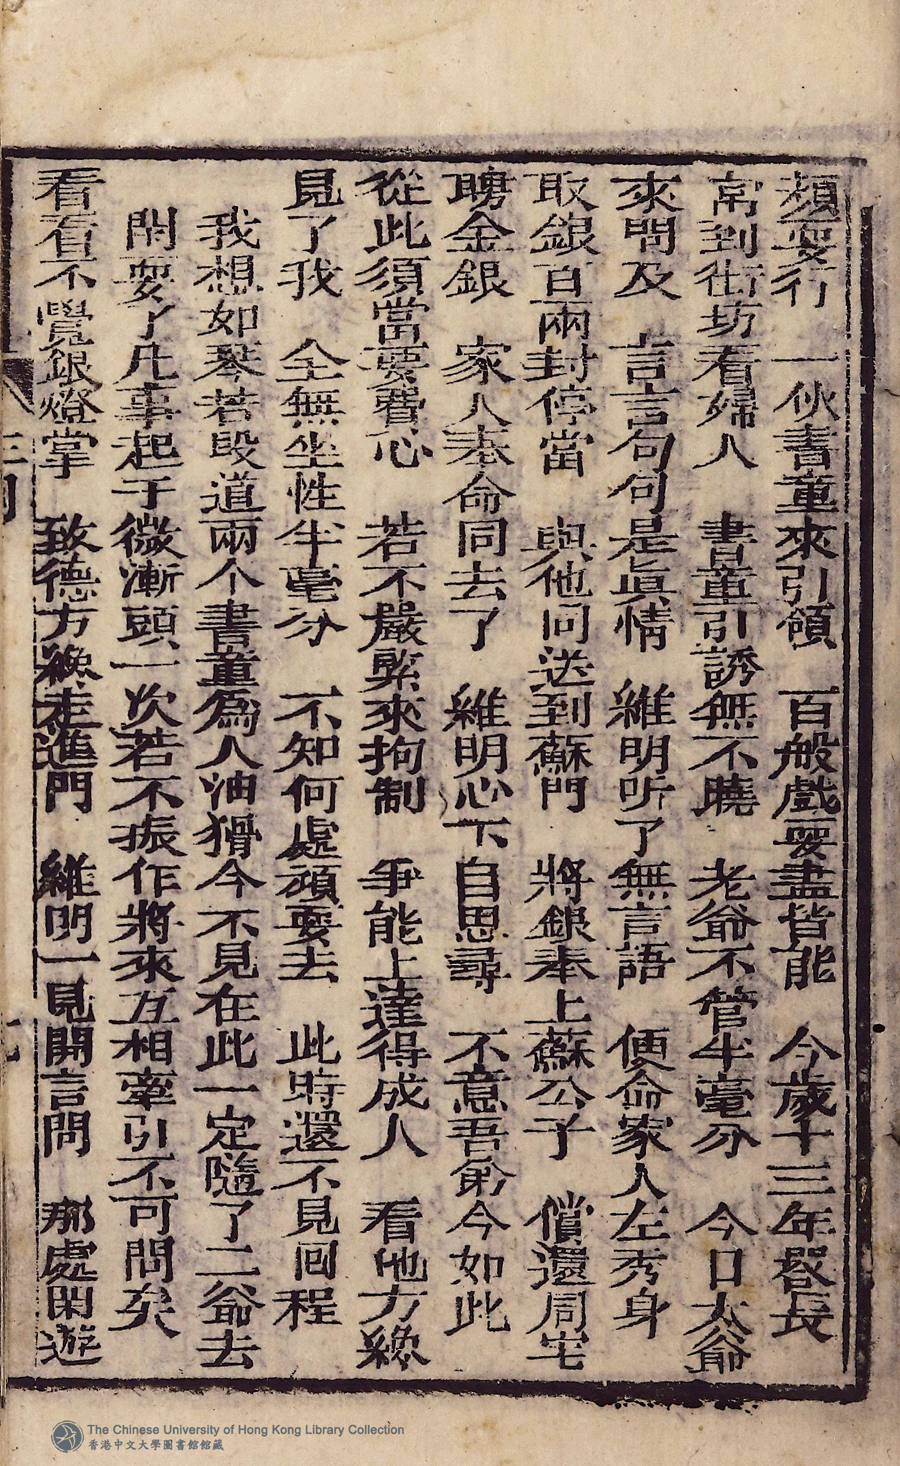 頻耍行　一伙書童來引領　百般戲耍盡皆能　今歲十三年畧長
常到街坊看婦人　書童引誘無不曉　老爺不管半毫分　今日太爺
來問及　言言句句是眞情　維明听了無言語　便命家人左秀身
取銀百兩封停當　與他同送到蘇門　將銀奉上蘇公子　償還周宅
聘金銀　家人奉命同去了　維明心下自思尋　不意吾俞今如此
從此須當要費心　若不嚴緊來拘制　爭能上達得成人　看他方纔
見了我　全無坐性半毫分　不知何處頑耍去　此時還不見囘程
我想如琴若段道兩个書童爲人油猾今不見在此一定隨了二爺去
閑耍了凡事起于微漸頭一次若不振作將來互相牽引不可問矣
看看不覺銀燈掌　致德方纔走進門　維明一見開言問　那處閑遊
The Chinese University of Hong Kong Library Collection
香港中文大學圖書館館藏